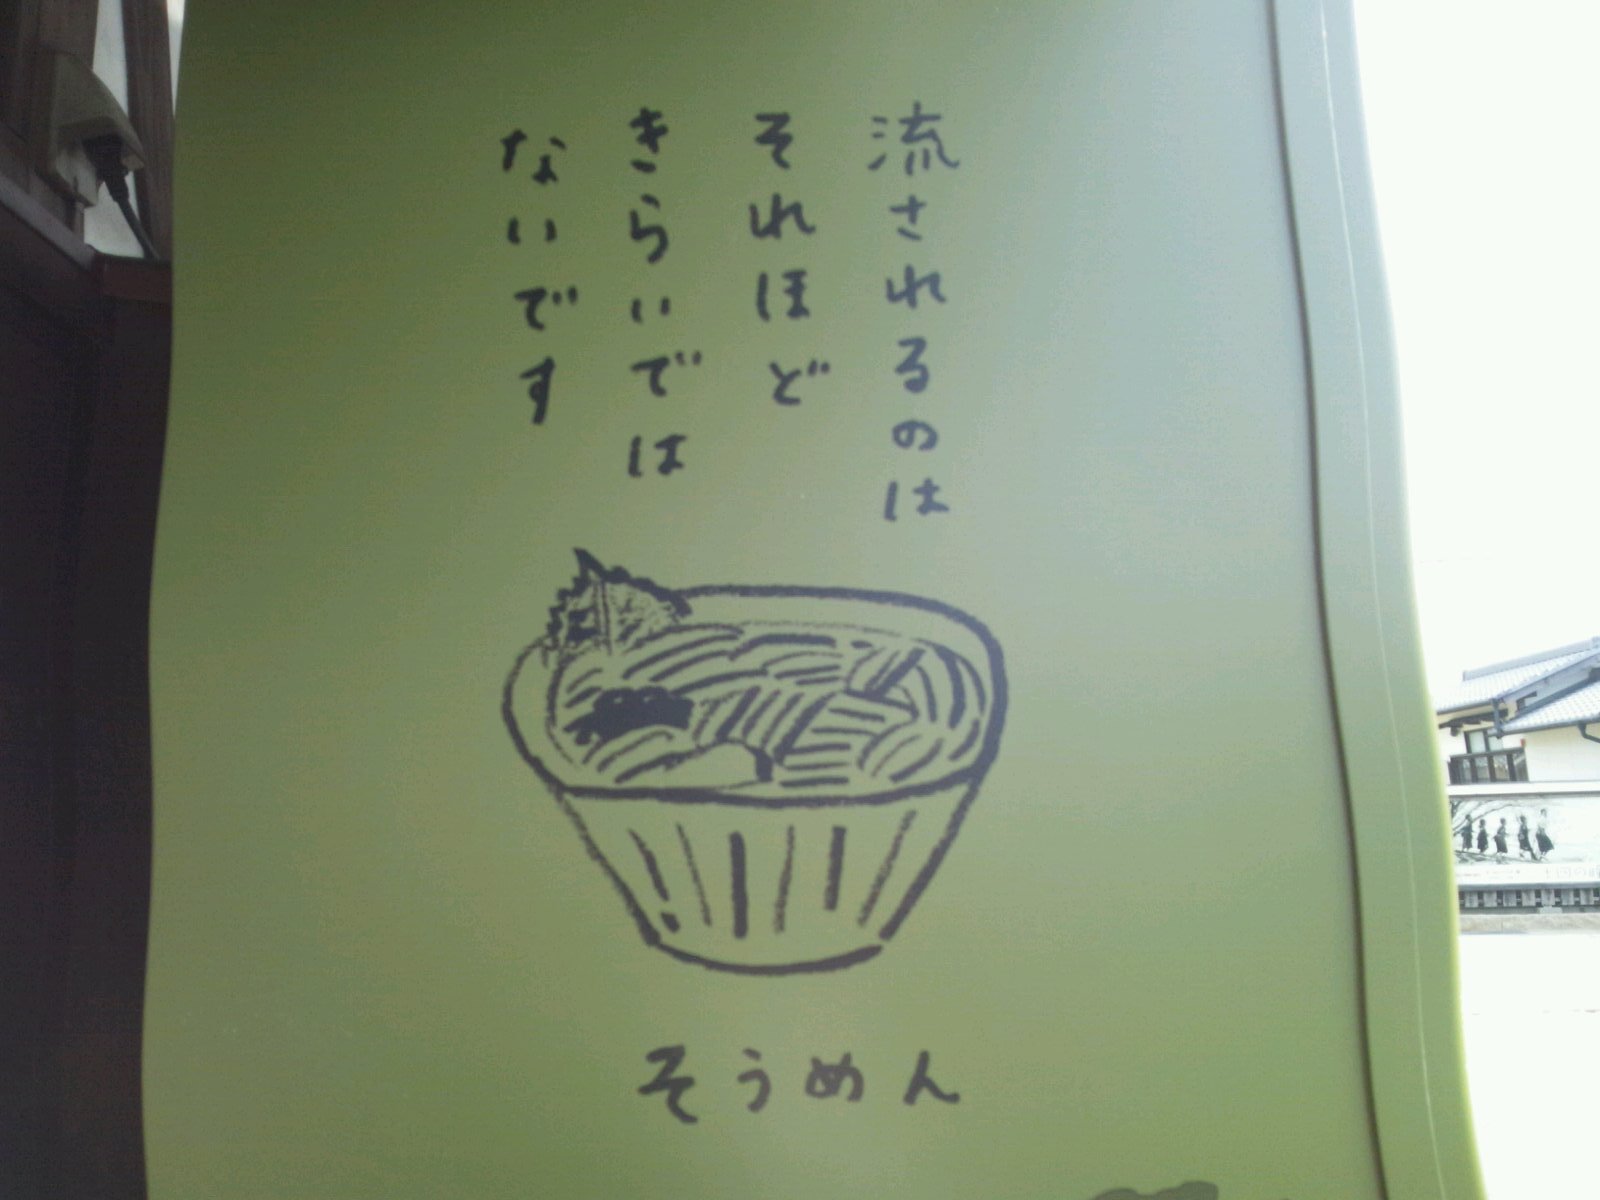 流されるのは
それほど
きらいでは
ないです
そうめん